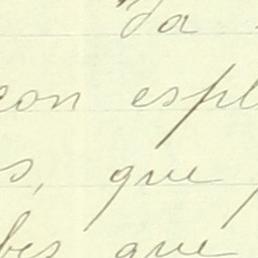 da
con espl
s, que
bes que